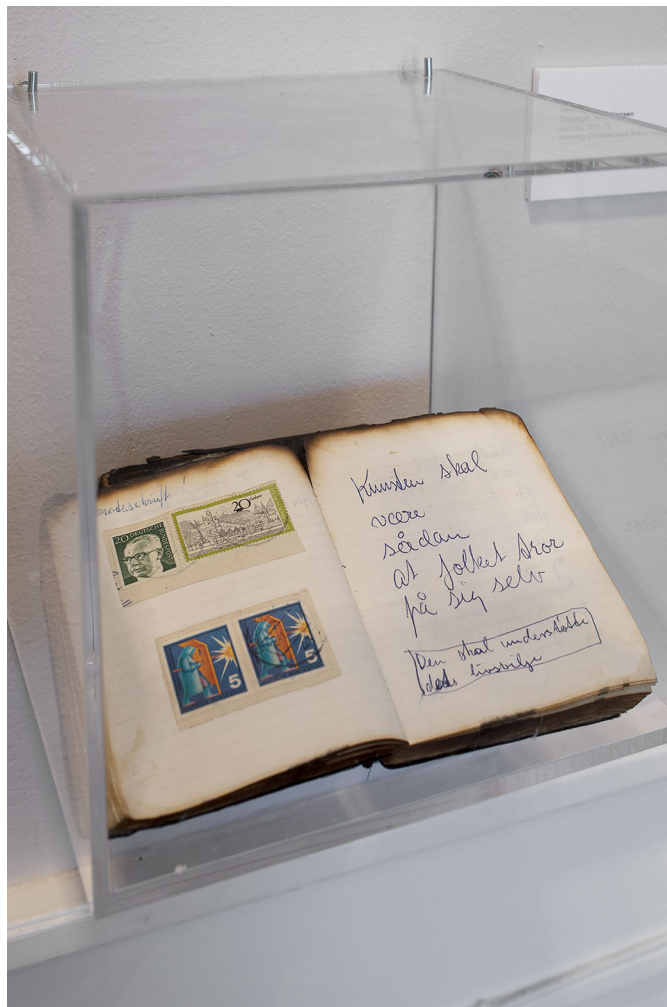 20 DEUTSCHE BUNDESPOST
20
5
5
Kunsten skal
være
sådan
at folket tror
på sig selv
Den skal understøtte
dets livsvilje